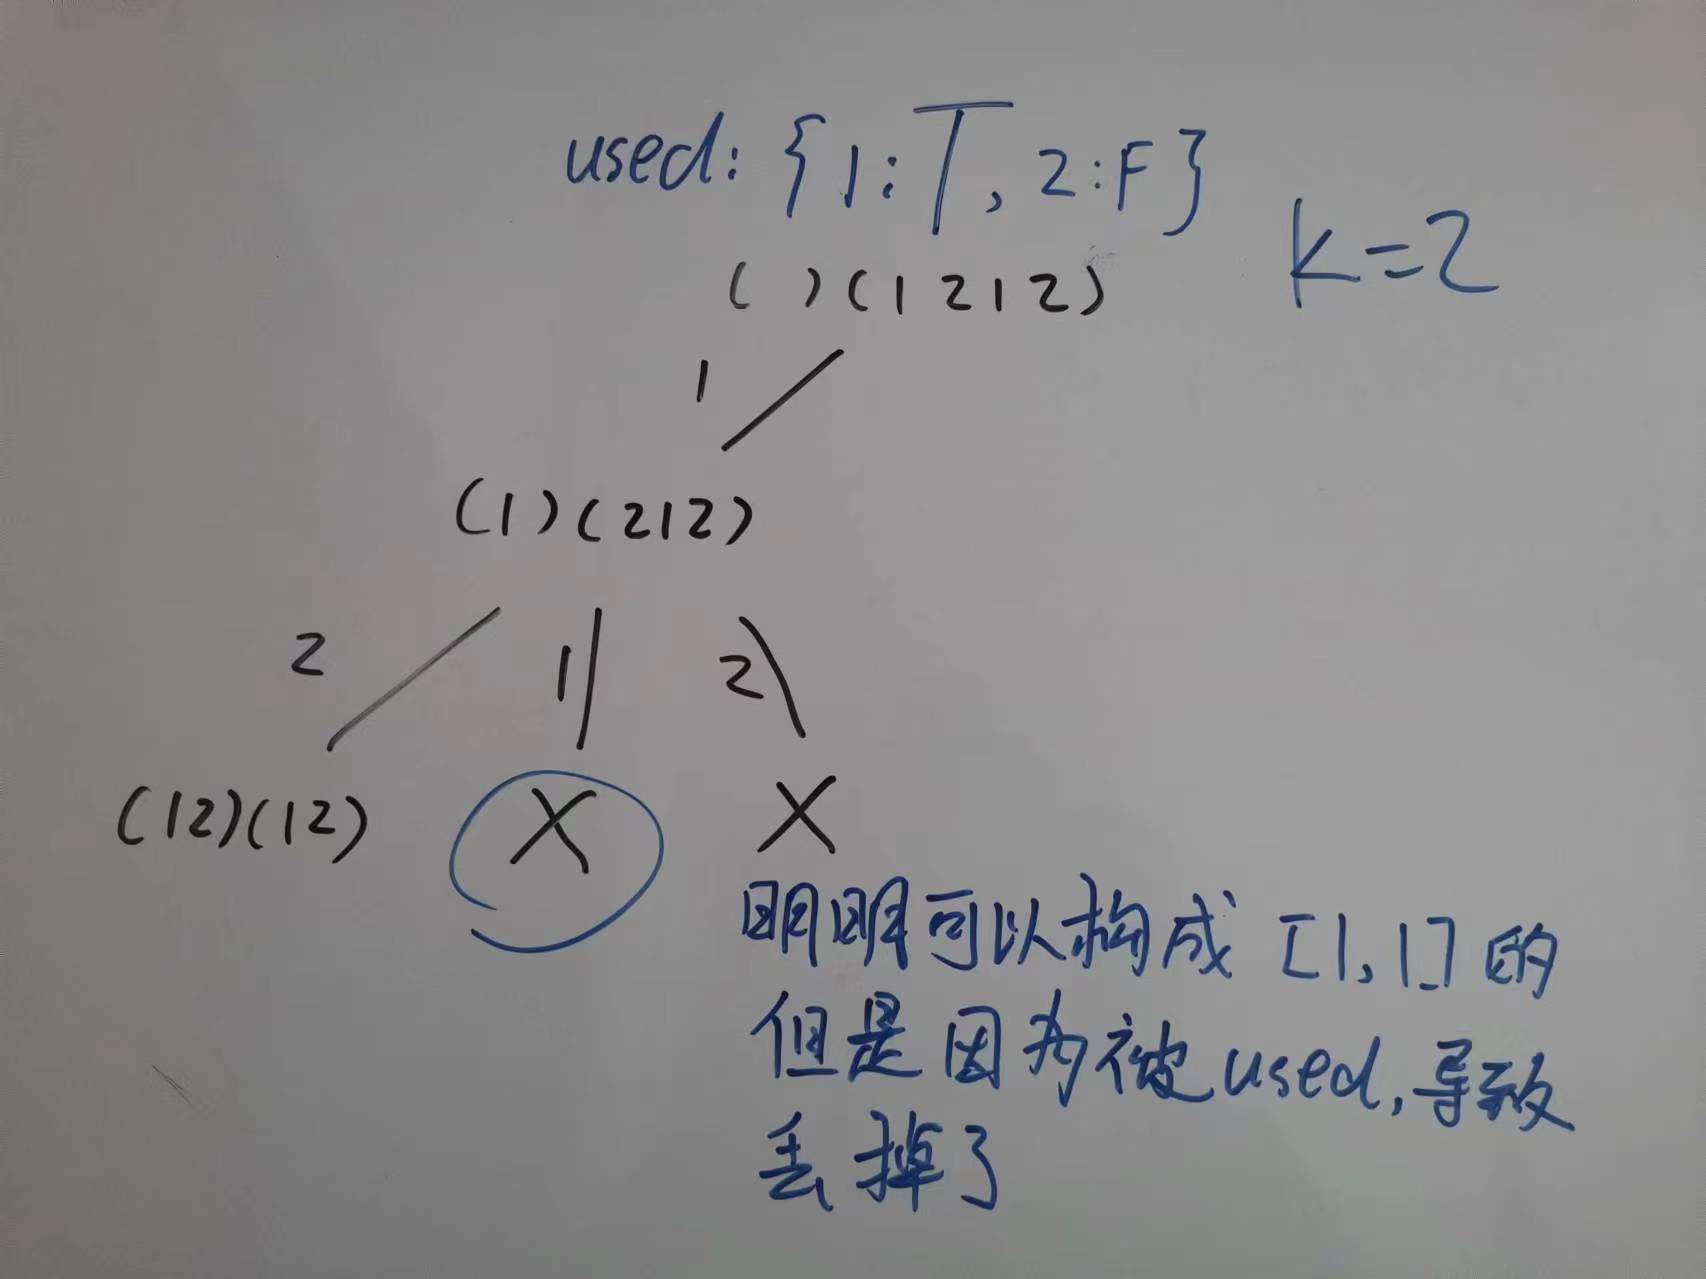 used: {1:T, 2:F}
k=2
( )(1 2 1 2)
1
(1)(212)
2 1 2
(12)(12) X X
明明可以构成 [1,1] 的
但是因为被used,导致
丢掉了